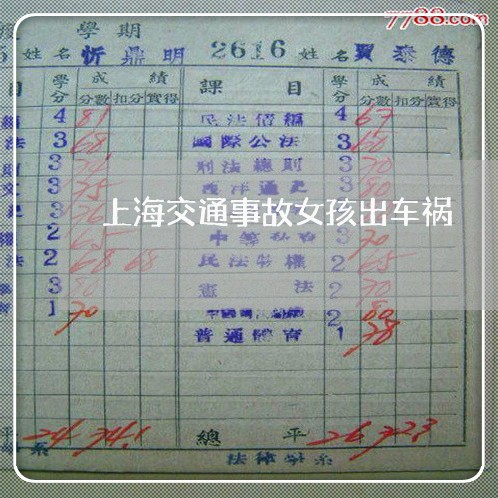 7788.com
學期
姓名 忻鼎明 2616 姓名 賈泰德
目 學分 成績 分數 扣分 實得 課目 學分 成績 分數 扣分 實得
4 81 民法債編 4 67
法 3 68 國際公法 3 60
3 刑法總則 3 70
3 75 西洋通史 3 80
上海交通事故女孩出车祸
2 65 3 70
法 2 68 68 民法物權 2 65
3 80 憲法 2 70
1 70 2 80
普通體育 1 78
平 24 74.1 總平 26 72.3
系 法律學系